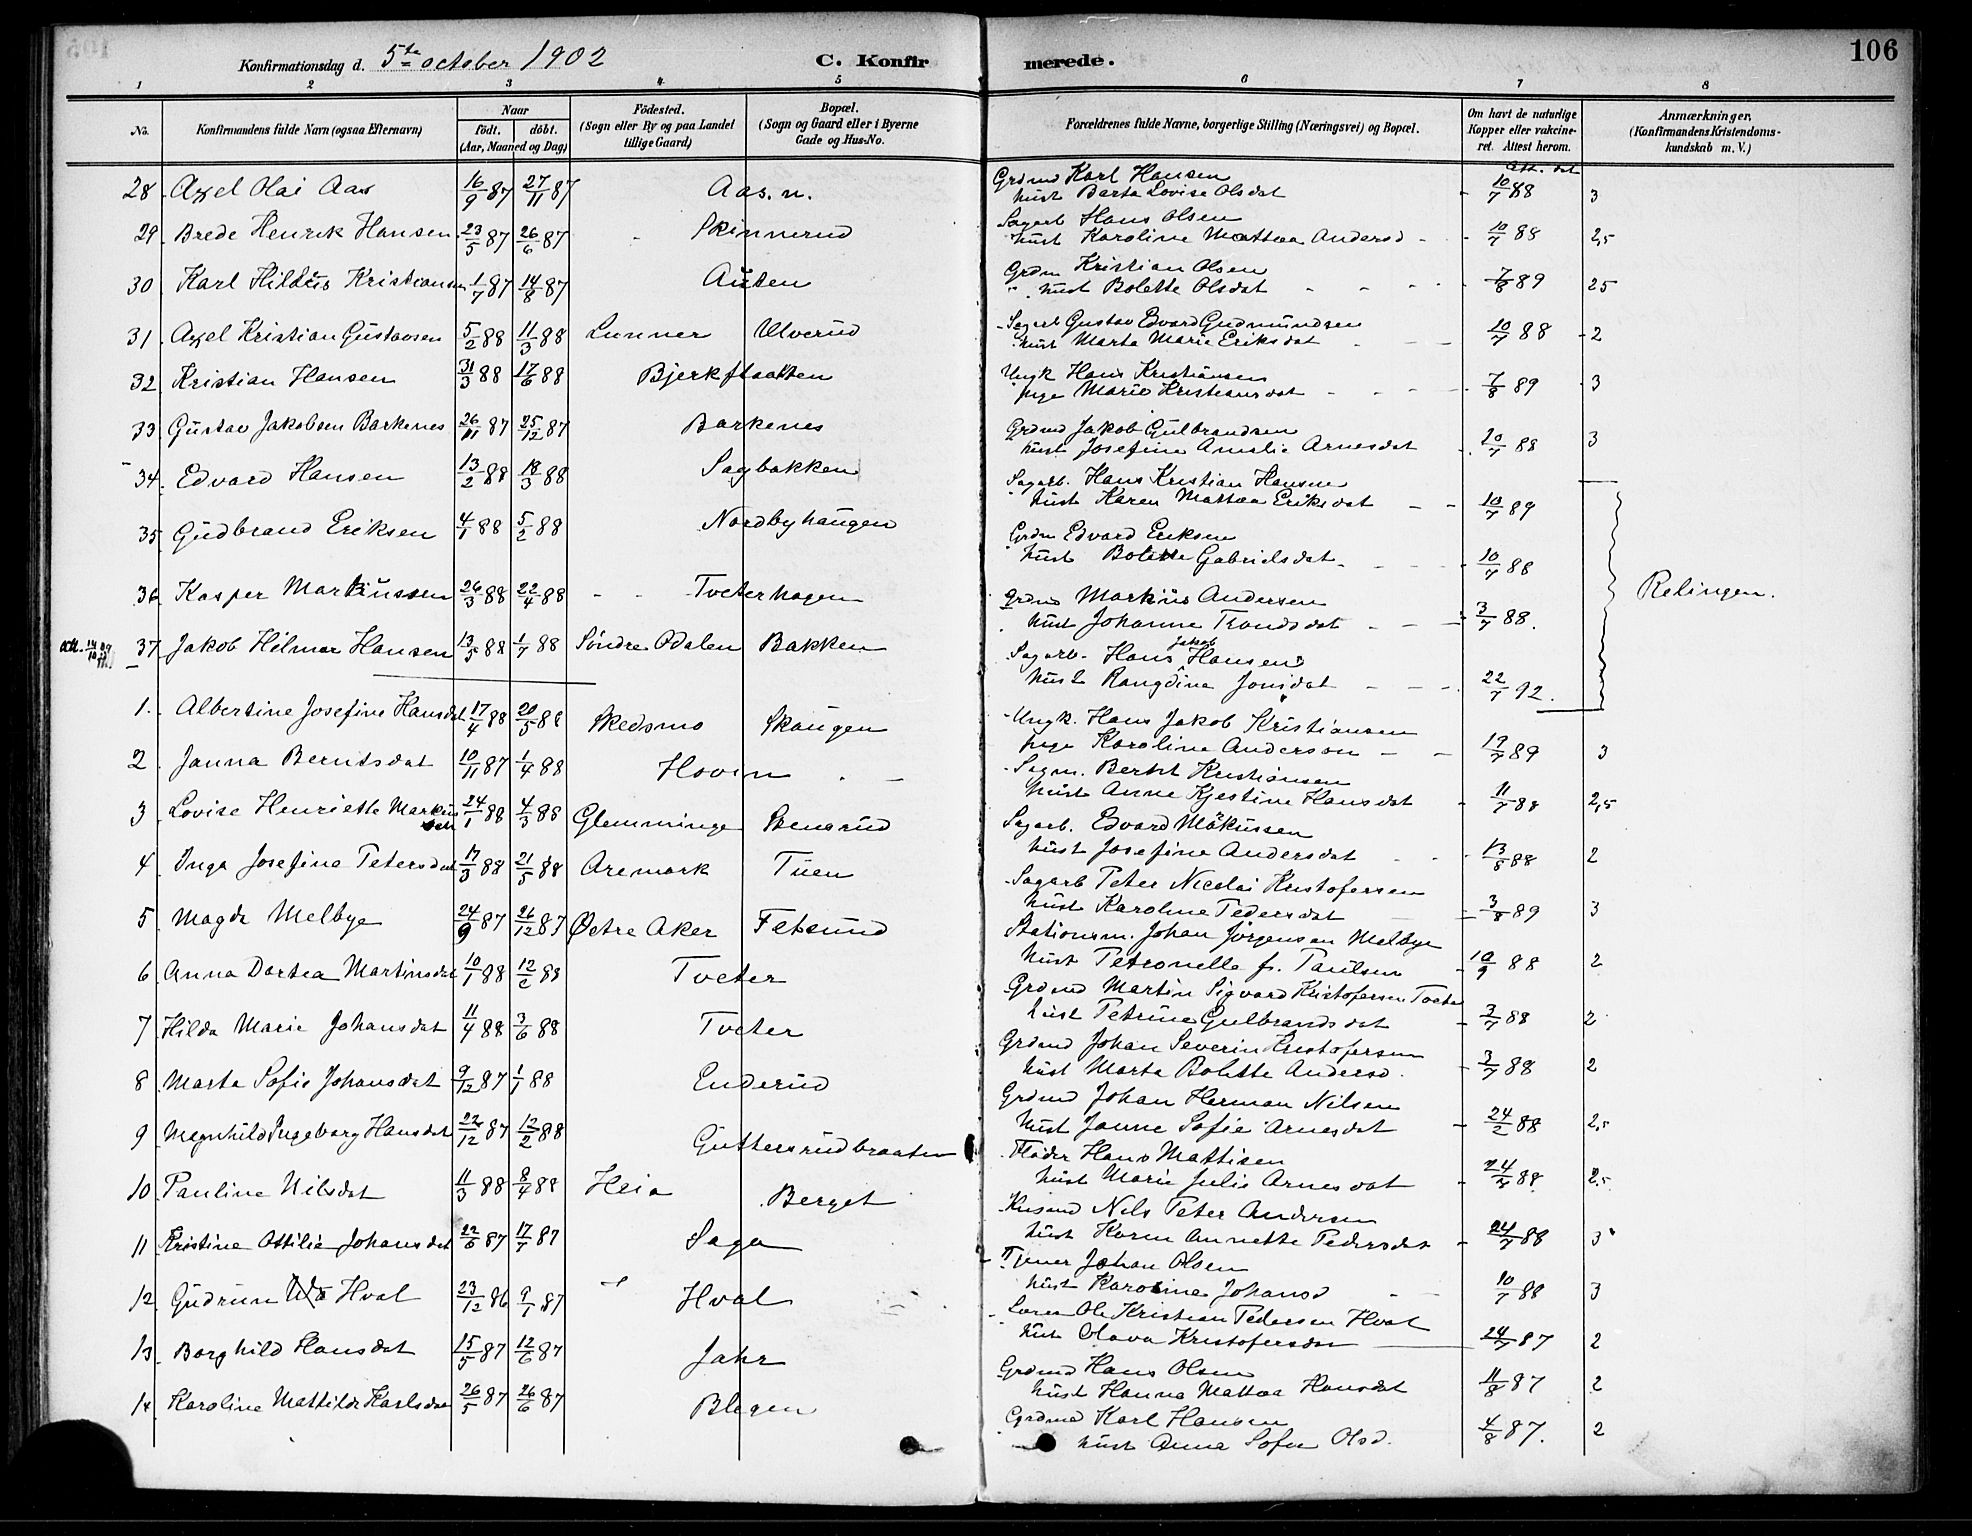 Konfirmationsdag d. 5te october 1902
C. Konfir merede.
106
1 2 3 4 5 6 7 8
No. Konfirmandens fulde Navn (ogsaa Efternavn) Naar födt. döbt. (Aar, Maaned og Dag) Födested. (Sogn eller By og paa Landet tillige Gaard) Bopæl. (Sogn og Gaard eller i Byerne Gade og Hus-No. Forældrenes fulde Navne, borgerlige Stilling (Næringsvei) og Bopæl. Om havt de naturlige Kopper eller vakcineret. Attest herom. Anmærkninger, (Konfirmandens Kristendomskundskab m. V.)
28 Axel Olai Aas 16/9 87 27/11 87 Aas. n. Grdmd Karl Hansen att. dat
hust Berta Lovise Olsdat 10/7 88 3
29 Brede Henrik Hansen 23/5 87 26/6 87 Skinnerud Sagarb Hans Olsen
hust Karoline Mathea Andersd 10/7 88 2,5
30 Karl Hildus Kristiansen 1/7 87 14/8 87 Auten Grdm Kristian Olsen
hust Bolette Olsdat 7/8 89 25
31 Axel Kristian Gustavsen 5/2 88 11/3 88 Lunner Ulverud Sagarb Gustav Edvard Gudmundsen
hust Marta Marie Eriksdat 10/7 88 2
32 Kristian Hansen 31/3 88 17/6 88 Bjerkflaatten Ungk Hans Kristiansen
pige Marie Kristiansdat 7/8 89 3
33 Gustav Jakobsen Barkenes 26/11 87 25/12 87 Barkenes Grdmd Jakob Gulbrandsen
hust Josefine Amalie Arnesdat 10/7 88 3
34 Edvard Hansen 13/2 88 18/3 88 Sagbakken Sagarb. Hans Kristian Hansen
hust Karen Mathea Eriksdat 10/7 89
35 Gudbrand Eriksen 4/1 88 5/2 88 Nordbyhaugen Grdm Edvard Eriksen
hust Bolette Gabrielsdat 10/7 88
36 Kasper Markussen 26/3 88 22/4 88 Tveterhagen Grdmd Markus Andersen Relingen.
hust Johanne Trondsdat 3/7 88.
37 Jakob Hilmar Hansen 13/5 88 1/7 88 Söndre Odalen Bakken Sagarb. Hans Jakob Hansen
hust Rangdine Jonsdat 22/7 92.
1. Albertine Josefine Hansdat 17/4 88 20/5 88 Skedsmo Skaugen Ungk. Hans Jakob Kristiansen
pige Karoline Anderson 19/7 89 3
2 Janna Berntsdat 10/11 87 1/4 88 Hovin Sagm. Bernt Kristiansen
hust Anne Kjestine Hansdat 11/7 88 2,5
3 Lovise Henriette Markus dat 24/1 88 4/3 88 Glemminge Stensrud Sagarb. Edvard Markussen
hust Josefine Andersdat 13/8 88 2
4 Inga Josefine Petersdat 17/3 88 21/5 88 Aremark Tuen Sagarb Peter Nicolai Kristofersen
hust Karoline Pedersdat 3/8 89 3
5 Magda Melbye 24/9 87 26/12 87 Østre Aker Fetsund Stationsm. Johan Jörgensen Melbye
hust Petronelle f. Paulsen 10/9 88 2
6 Anna Dortea Martinsdat 10/1 88 12/2 88 Tveter Grdmd Martin Sigvard Kristofersen Tveter
hust Petrine Gulbrandsdat 3/7 88 2
7 Hilda Marie Johansdat 11/4 88 3/6 88 Tveter Grdmd Johan Severin Kristofersen
hust Marta Bolette Andersd. 3/7 88 2
8 Marta Sofie Johansdat 9/12 87 1/1 88 Enderud Grdmd Johan Herman Nilsen
hust Janne Sofie Arnesdat 24/2 88 2,5
9 Magnhild Ingeborg Hansdat 22/12 87 12/2 88 Guttersrudbraaten Fløder Hans Mattisen
hust Marie Julie Arnesdat 24/7 88 2,5
10 Pauline Nilsdat 11/3 88 8/4 88 Heia Berget Husmd Nils Peter Andersen
hust Karen Annette Pedersdat 24/7 88 3
11 Kristine Ottilie Johansdat 22/6 87 17/7 87 Saga Tjener Johan Olsen
hust Karoline Johansd 10/7 88 3
12 Gudrun Hval 23/12 86 9/1 87 Hval Lærer Ole Kristian Pedersen Hval
hust Olava Kristofersdat 24/7 87 2
13 Borghild Hansdat 15/5 87 12/6 87 Jahr Grdmd Hans Olsen
hust Hanna Mathea Hansdat 11/8 87 2
14 Karoline Mathilde Karlsdat 26/5 87 26/6 87 Blegen Grdmd Karl Hansen
hust Anna Sofie Olsd. 4/8 87. 2